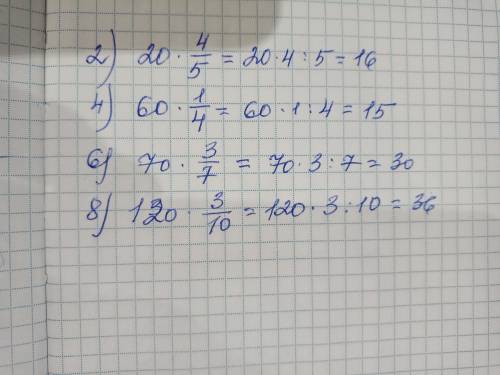 2) 20 · 4/5 = 20 · 4 : 5 = 16
4) 60 · 1/4 = 60 · 1 : 4 = 15
6) 70 · 3/7 = 70 · 3 : 7 = 30
8) 120 · 3/10 = 120 · 3 : 10 = 36